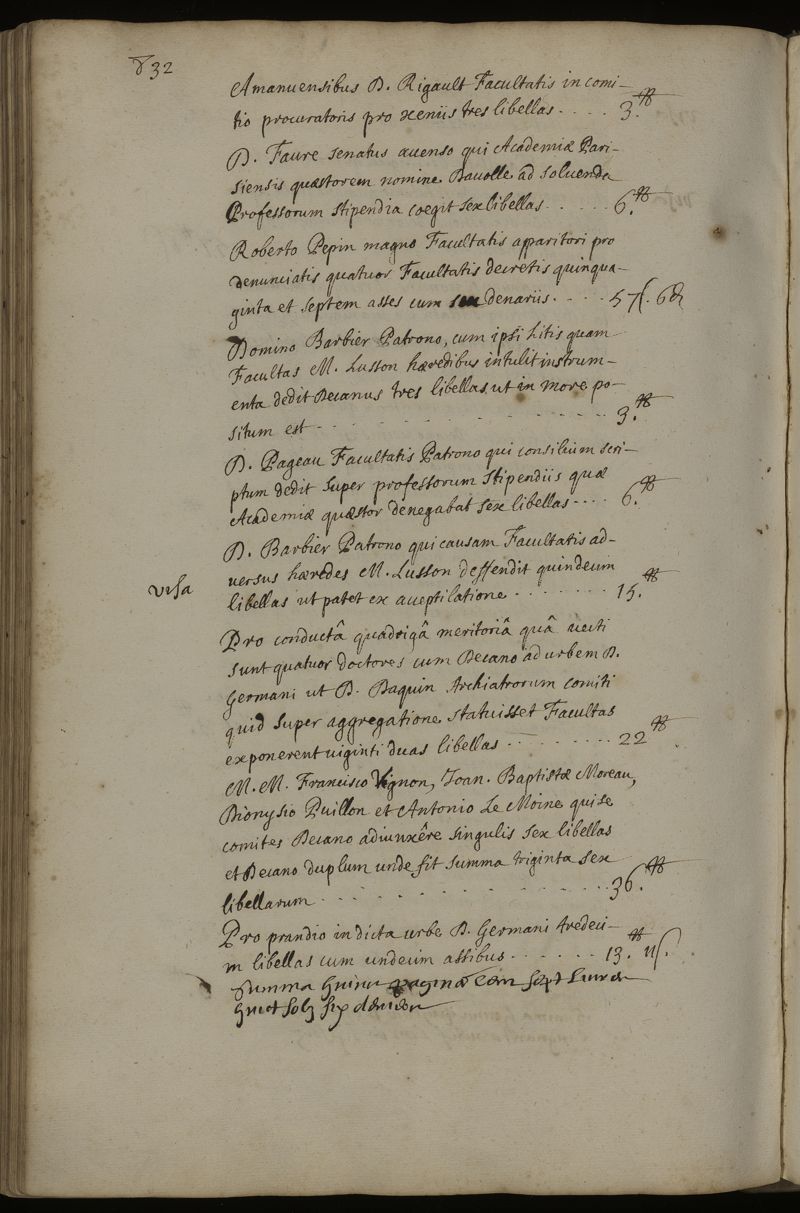 832
Amanuensibus D. Rigault Facultatis in comi-
tio procuratoris pro xeniis tres libellas .... 3.ᵗᵗ
D. Faure senatus accenso qui Academiæ Pari-
siensis quæstorem nomine Bavolle ad solvenda
Professorum stipendia coegit sex libellas ..... 6.ᵗᵗ
Roberto Pepin magno Facultatis apparitori pro
denunciatis quatuor Facultatis decretis quinqua-
ginta et septem asses cum denariis .... 57ſ. 6₰
Domino Barbier Patrono, cum ipsi Litis quam
Facultas M. Lusson hæredibus intulit instrum-
enta dedit Decanus tres libellas, ut in more po-
situm est .......... 3.ᵗᵗ
D. Pageau Facultatis Patrono qui consilium scri-
ptum dedit super professorum stipendiis quæ
Academiæ quæstor denegabat sex libellas .... 6.ᵗᵗ
D. Barbier Patrono qui causam Facultatis ad-
versus hæredes M. Lusson deffendit quindecim
visa
libellas ut patet ex acceptilatione ........ 15.ᵗᵗ
Pro conductâ quadrigâ meritoriâ quâ vecti
sunt quatuor doctores cum Decano ad urbem D.
Germani ut D. Daquin Archiatrorum comiti
quid super aggregatione statuisset Facultas
exponerent viginti duas libellas ......... 22ᵗᵗ
M. M. Francisco Vignon, Joan. Baptistæ Moreau,
Dionysio Puillon et Antonio Le Moine qui se
comites Decano adiunxêre singulis sex libellas
et Decano duplum unde fit summa triginta sex
libellarum .......... 36.ᵗᵗ
Pro prandio in dicta urbe D. Germani tredeci-
m libellas cum undecim assibus ....... 13.ᵗᵗ 11ſ.
Summa huius paginæ Cent sept Livres
huict solz six deniers